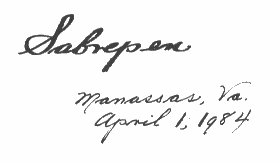 Sabrepen
Manassas, Va.
April 1, 1984